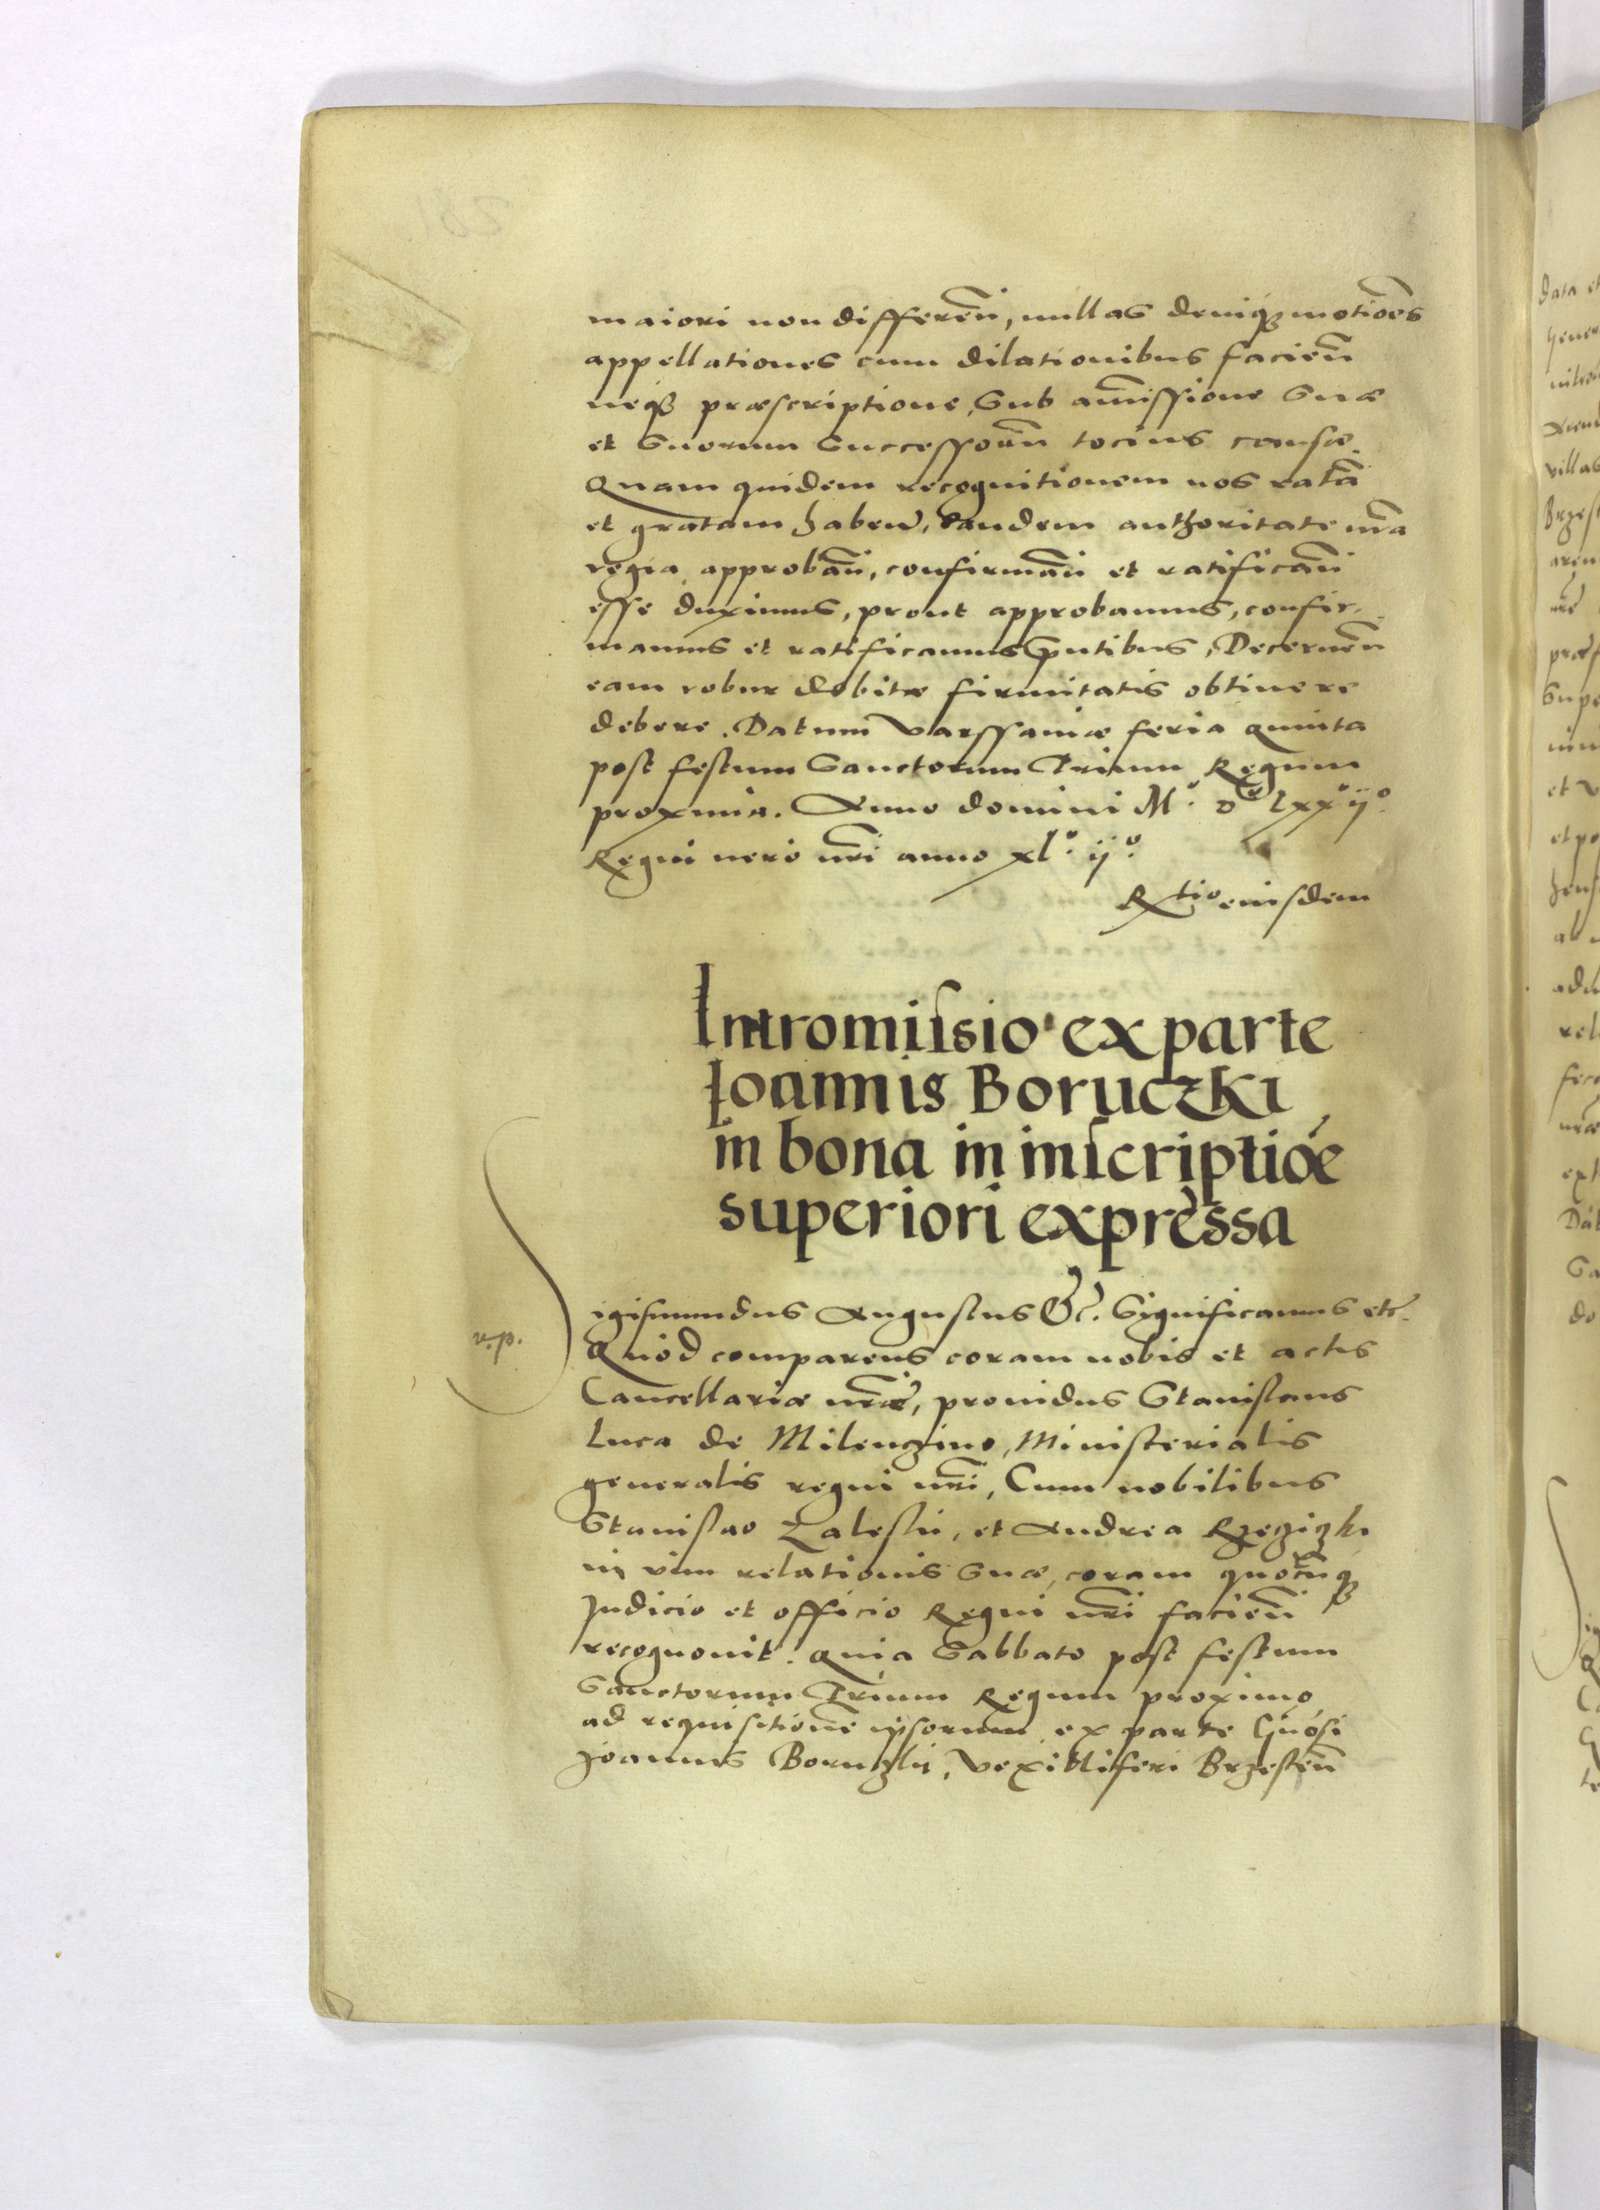 maiori non differeñ, nullas deniqȝ motiões
appellationes cum dilationibus facieñ
neqȝ præscriptione, Sub amissione Suæ
et Suorum Successorũ tocius causæ.
Quam quidem recognitionem nos ratã
et gratam haben̄, eandem authoritate nr̃a
regia approbañ, confirmañ et ratificañ
esse duximus, prout approbamus, confir-
mamus et ratificamus pñtibus, Decerneñ
eam robur debitæ firmitatis obtinere
debere. Datum Varssaviæ feria quinta
post festum Sanctorum Trium Regum
proxima. Anno domini Mº Dº Lxxºijº
Regni vero nr̃i anno xlº ijº
Rtio eiusdem
Intromissio ex parte
Joannis Boruczki
in bona in inscriptiõe
superiori expressa
v.p.
Sigismundus Augustus &c̃. Significamus etc̃.
Quod comparens coram nobis et actis
Cancellariæ nr̃æ, providus Stanislaus
Luca de Milenczino, Ministerialis
generalis regni nr̃i, Cum nobilibus
Stanislao Zaleskii, et Andrea Rzeziczki
in vim relationis suæ, coram quocũqȝ
Judicio et officio Regni nr̃i facieñ
recognovit. Quia Sabbato post festum
Sanctorum Trium Regum proximo,
ad requisitionẽ ipsorum ex parte Gñosi
Joannis Boruczkij, Vexilliferi Brzesteñ